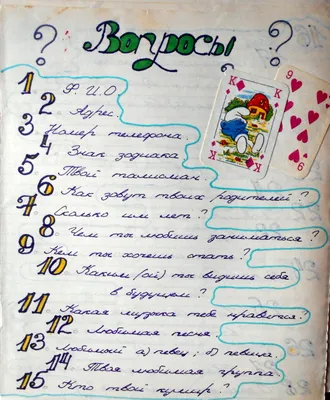 ? Вопросы ?
1 Ф. И. О.
2 Адрес.
3 Номер телефона.
4 Знак зодиака
5 Твой талисман.
6 Как зовут твоих родителей?
7 Сколько им лет?
8 Чем ты любишь заниматься?
9 Кем ты хочешь стать?
10 Каким (ой) ты видишь себя
в будущем?
11 Какая музыка тебе нравится?
12 Любимая песня.
13 Любимый а) певец; б) певица.
14 Твоя любимая группа.
15 Кто твой кумир?
K
K
9
9